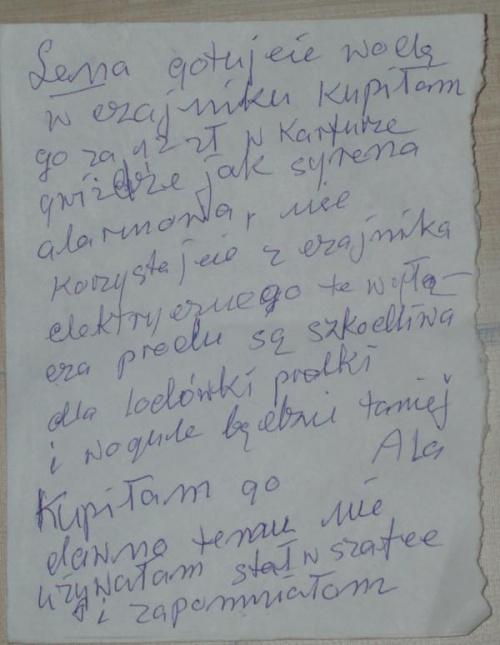 Lena gotujcie wodę
w czajniku kupiłam
go za 12 zł w Karfurze
gwiżdże jak syrena
alarmowa, nie
korzystajcie z czajnika
elektrycznego te wyłą-
cza prondu są szkodliwa
dla lodówki pralki
i wogule będzie taniej
Ala
Kupiłam go
dawno temu nie
używałam stał w szafce
i zapomniałam